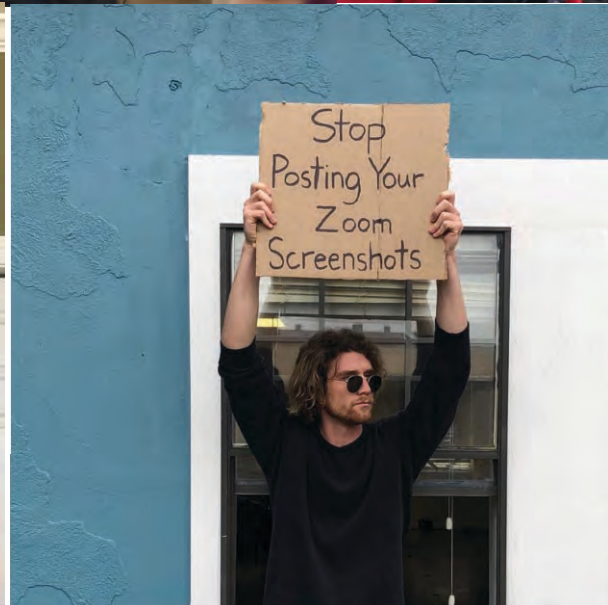 Stop
Posting Your
Zoom
Screenshots